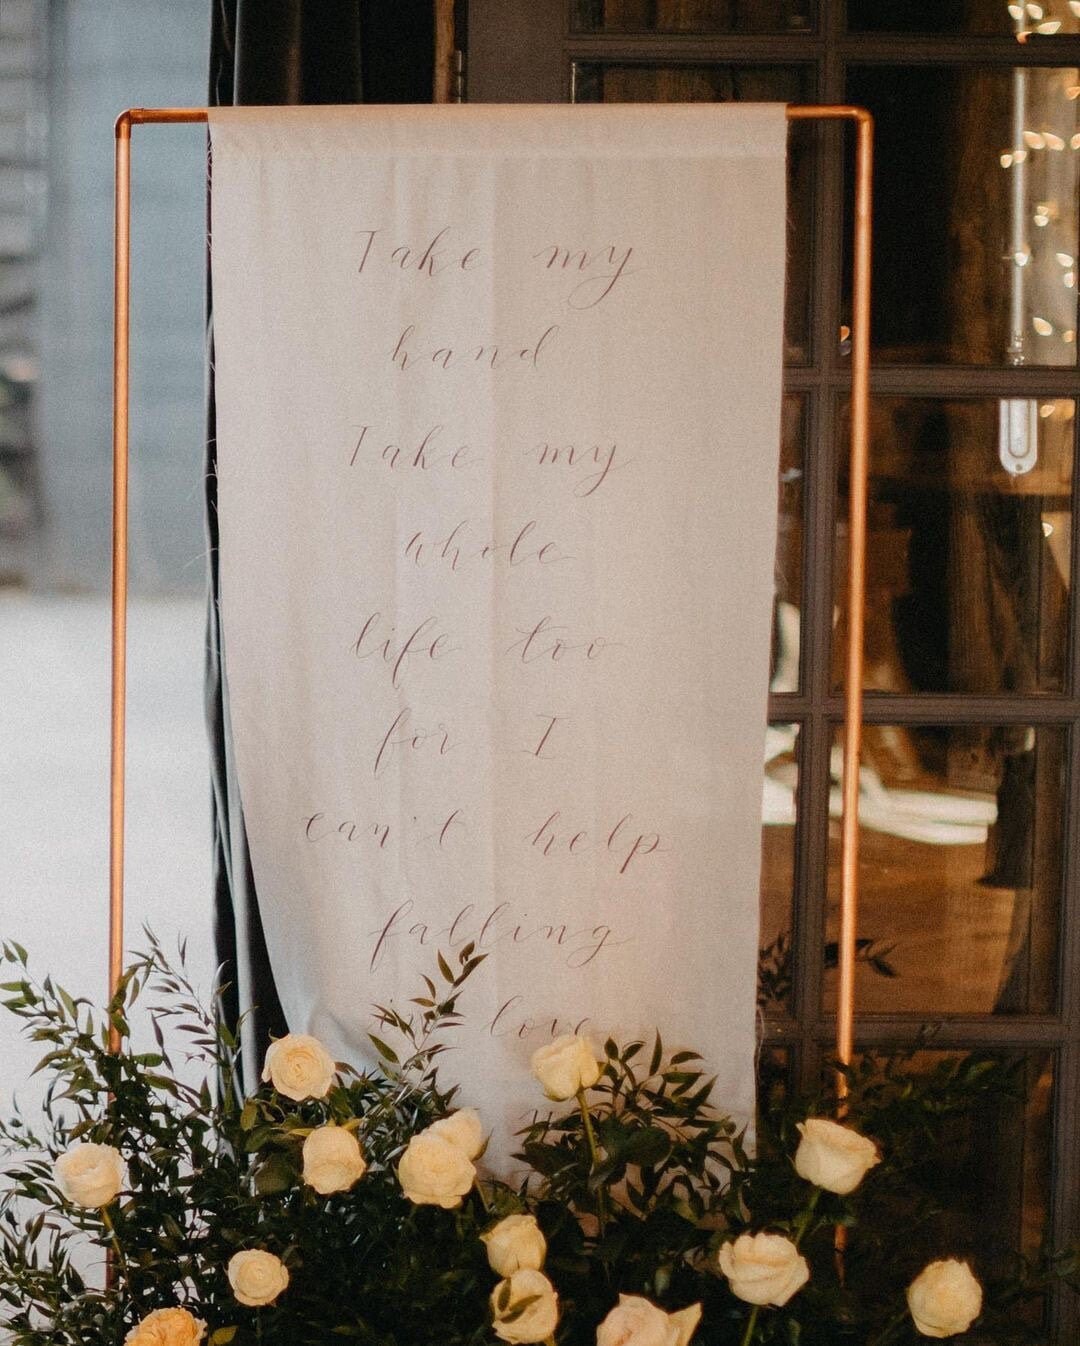 Take my
hand
Take my
whole
life too
for I
can't help
falling
love